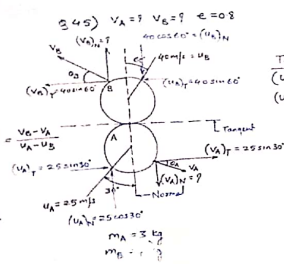 345) V_A = ? V_B = ? e = 0.8
(V_B)_N = ?
40cos60° = (U_B)_N
V_B
θ_B
40m/s = U_B
(V_B)_T = 40sin60°
B
(U_B)_T = 40sin60°
= (V_B - V_A) / (U_A - U_B)
A
Tangent
(U_A)_T = 25sin30°
θ_A
(V_A)_T = 25sin30°
V_A
U_A = 25m/s
30°
(V_A)_N = ?
Normal
(U_A)_N = 25cos30°
m_A = 3 kg
m_B =